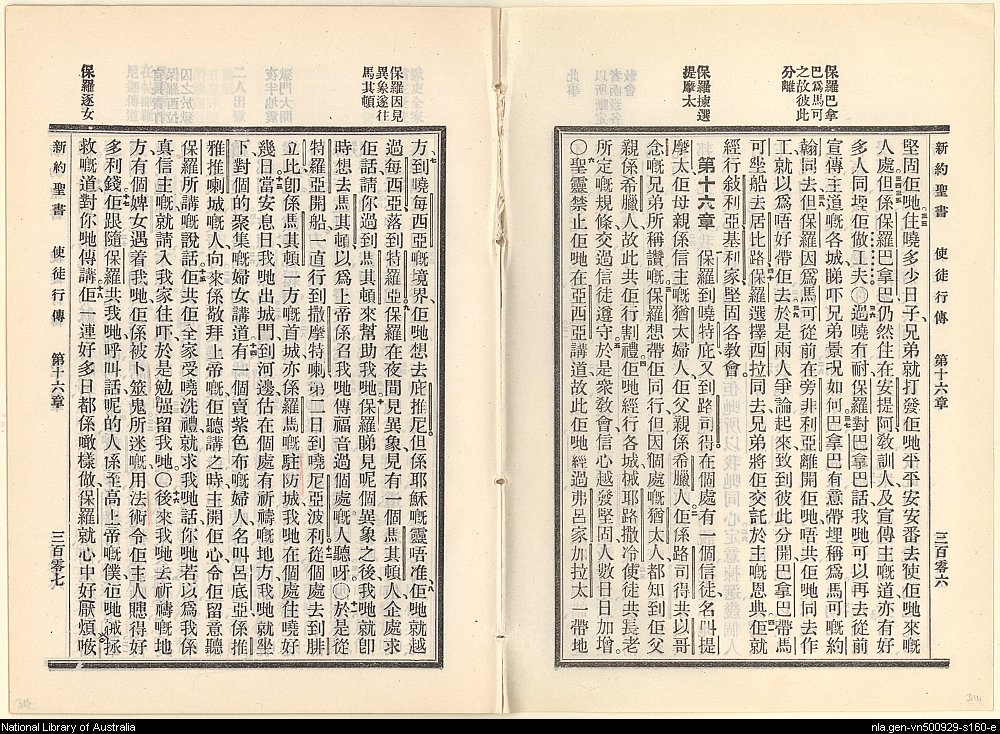 新約聖書 使徒行傳 第十六章 三百零六
保羅巴拿
巴爲馬可
之故彼此
分離
保羅揀選
提摩太
堅固佢哋住曉多少日子兄弟就打發佢哋平平安安番去使佢哋來嘅
人處但係保羅巴拿巴仍然住在安提阿教訓人及宣傳主道亦有好
多人同埋佢做工夫〇過曉有耐保羅對巴拿巴話我哋可以再去從前
宣傳主道嘅各城睇吓兄弟景況如何巴拿巴有意帶埋稱爲馬可嘅約
翰同去但保羅因爲馬可從前在旁非利亞離開佢哋唔共佢哋同去作
工就以爲唔好帶佢去於是兩人爭論起來致到彼此分開巴拿巴帶馬
可坐船去居比路保羅選擇西拉同去兄弟將佢交託於主嘅恩典佢就
經行敍利亞基利家堅固各教會
第十六章 保羅到曉特庇又到路司得在個處有一個信徒名叫提
摩太佢母親係信主嘅猶太婦人佢父親係希臘人佢係路司得共以哥
念嘅兄弟所稱讚嘅保羅想帶佢同行但因個處嘅猶太人都知到佢父
親係希臘人故此共佢行割禮佢哋經行各城械耶路撒冷使徒共長老
所定嘅規條交過信徒遵守於是衆教會信心越發堅固人數日日加增
〇聖靈禁止佢哋在亞西亞講道故此佢哋經過弗呂家加拉太一帶地
保羅因見
異象遂往
馬其頓
保羅逐女
方到曉每西亞嘅境界佢哋想去庇推尼但係耶穌嘅靈唔准佢哋就越
過每西亞落到特羅亞保羅在夜間見異象見有一個馬其頓人企處求
佢話請你過到馬其頓來幫助我哋保羅睇見呢個異象之後我哋就卽
時想去馬其頓以爲上帝係召我哋傳福音過個處嘅人聽呀〇於是從
特羅亞開船一直行到撒摩特喇第二日到曉尼亞波利從個處去到腓
立比卽係馬其頓一方嘅首城亦係羅馬嘅駐防城我哋在個處住曉好
幾日當安息日我哋出城門到河邊估在個處有祈禱嘅地方我哋就坐
下對個的聚集嘅婦女講道有一個賣紫色布嘅婦人名叫呂底亞係推
雅推喇城嘅人向來係敬拜上帝嘅佢聽講之時主開佢心令佢留意聽
保羅所講嘅說話佢共佢全家受曉洗禮就求我哋話你哋若以爲我係
真信主嘅就請入我家住吓於是勉强留我哋〇後來我哋去祈禱嘅地
方有個婢女遇着我哋佢係被卜筮鬼所迷嘅用法術令佢主人贃得好
多利錢佢跟隨保羅共我哋呼叫話呢的人係至高上帝嘅僕佢哋械拯
救嘅道對你哋傳講佢一連好多日都係噉樣做保羅就心中好厭煩
新約聖書 使徒行傳 第十六章 三百零七
National Library of Australia
nla.gen-vn500929-s160-e